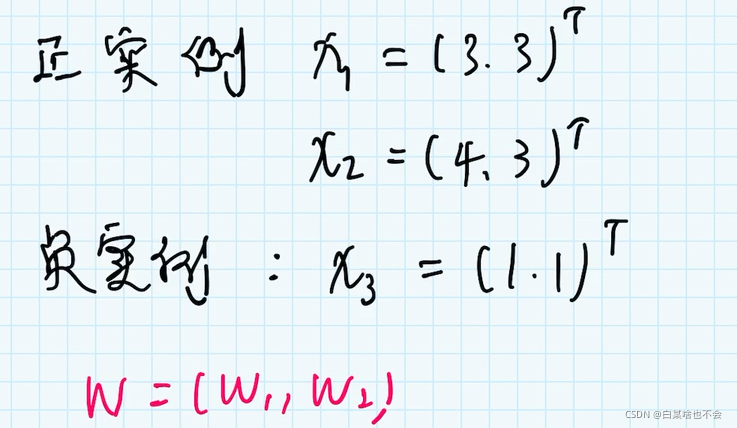 正实例 x₁ = (3.3)ᵀ
x₂ = (4、3)ᵀ
负实例 : x₃ = (1.1)ᵀ
W = (W₁, W₂)
CSDN @白菜啥也不会